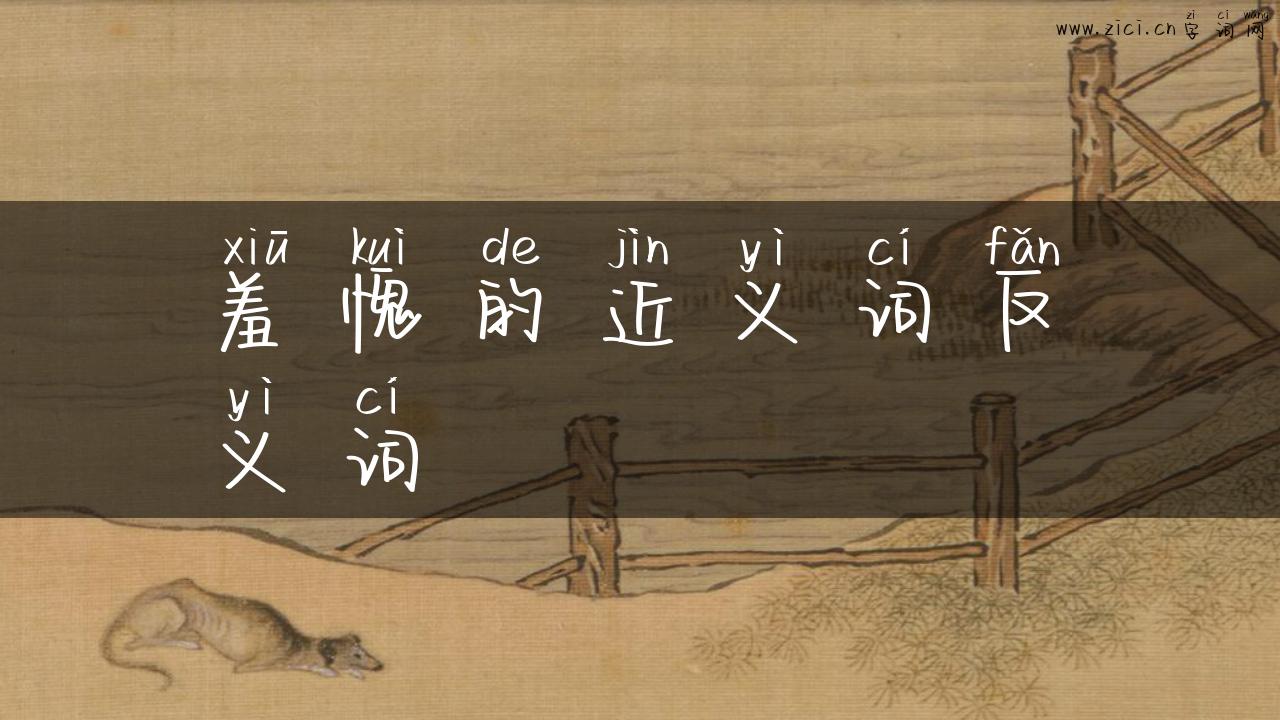 zì cí wǎng
www.zici.cn 字词网
xiū kuì de jìn yì cí fǎn
羞愧的近义词反
yì cí
义词